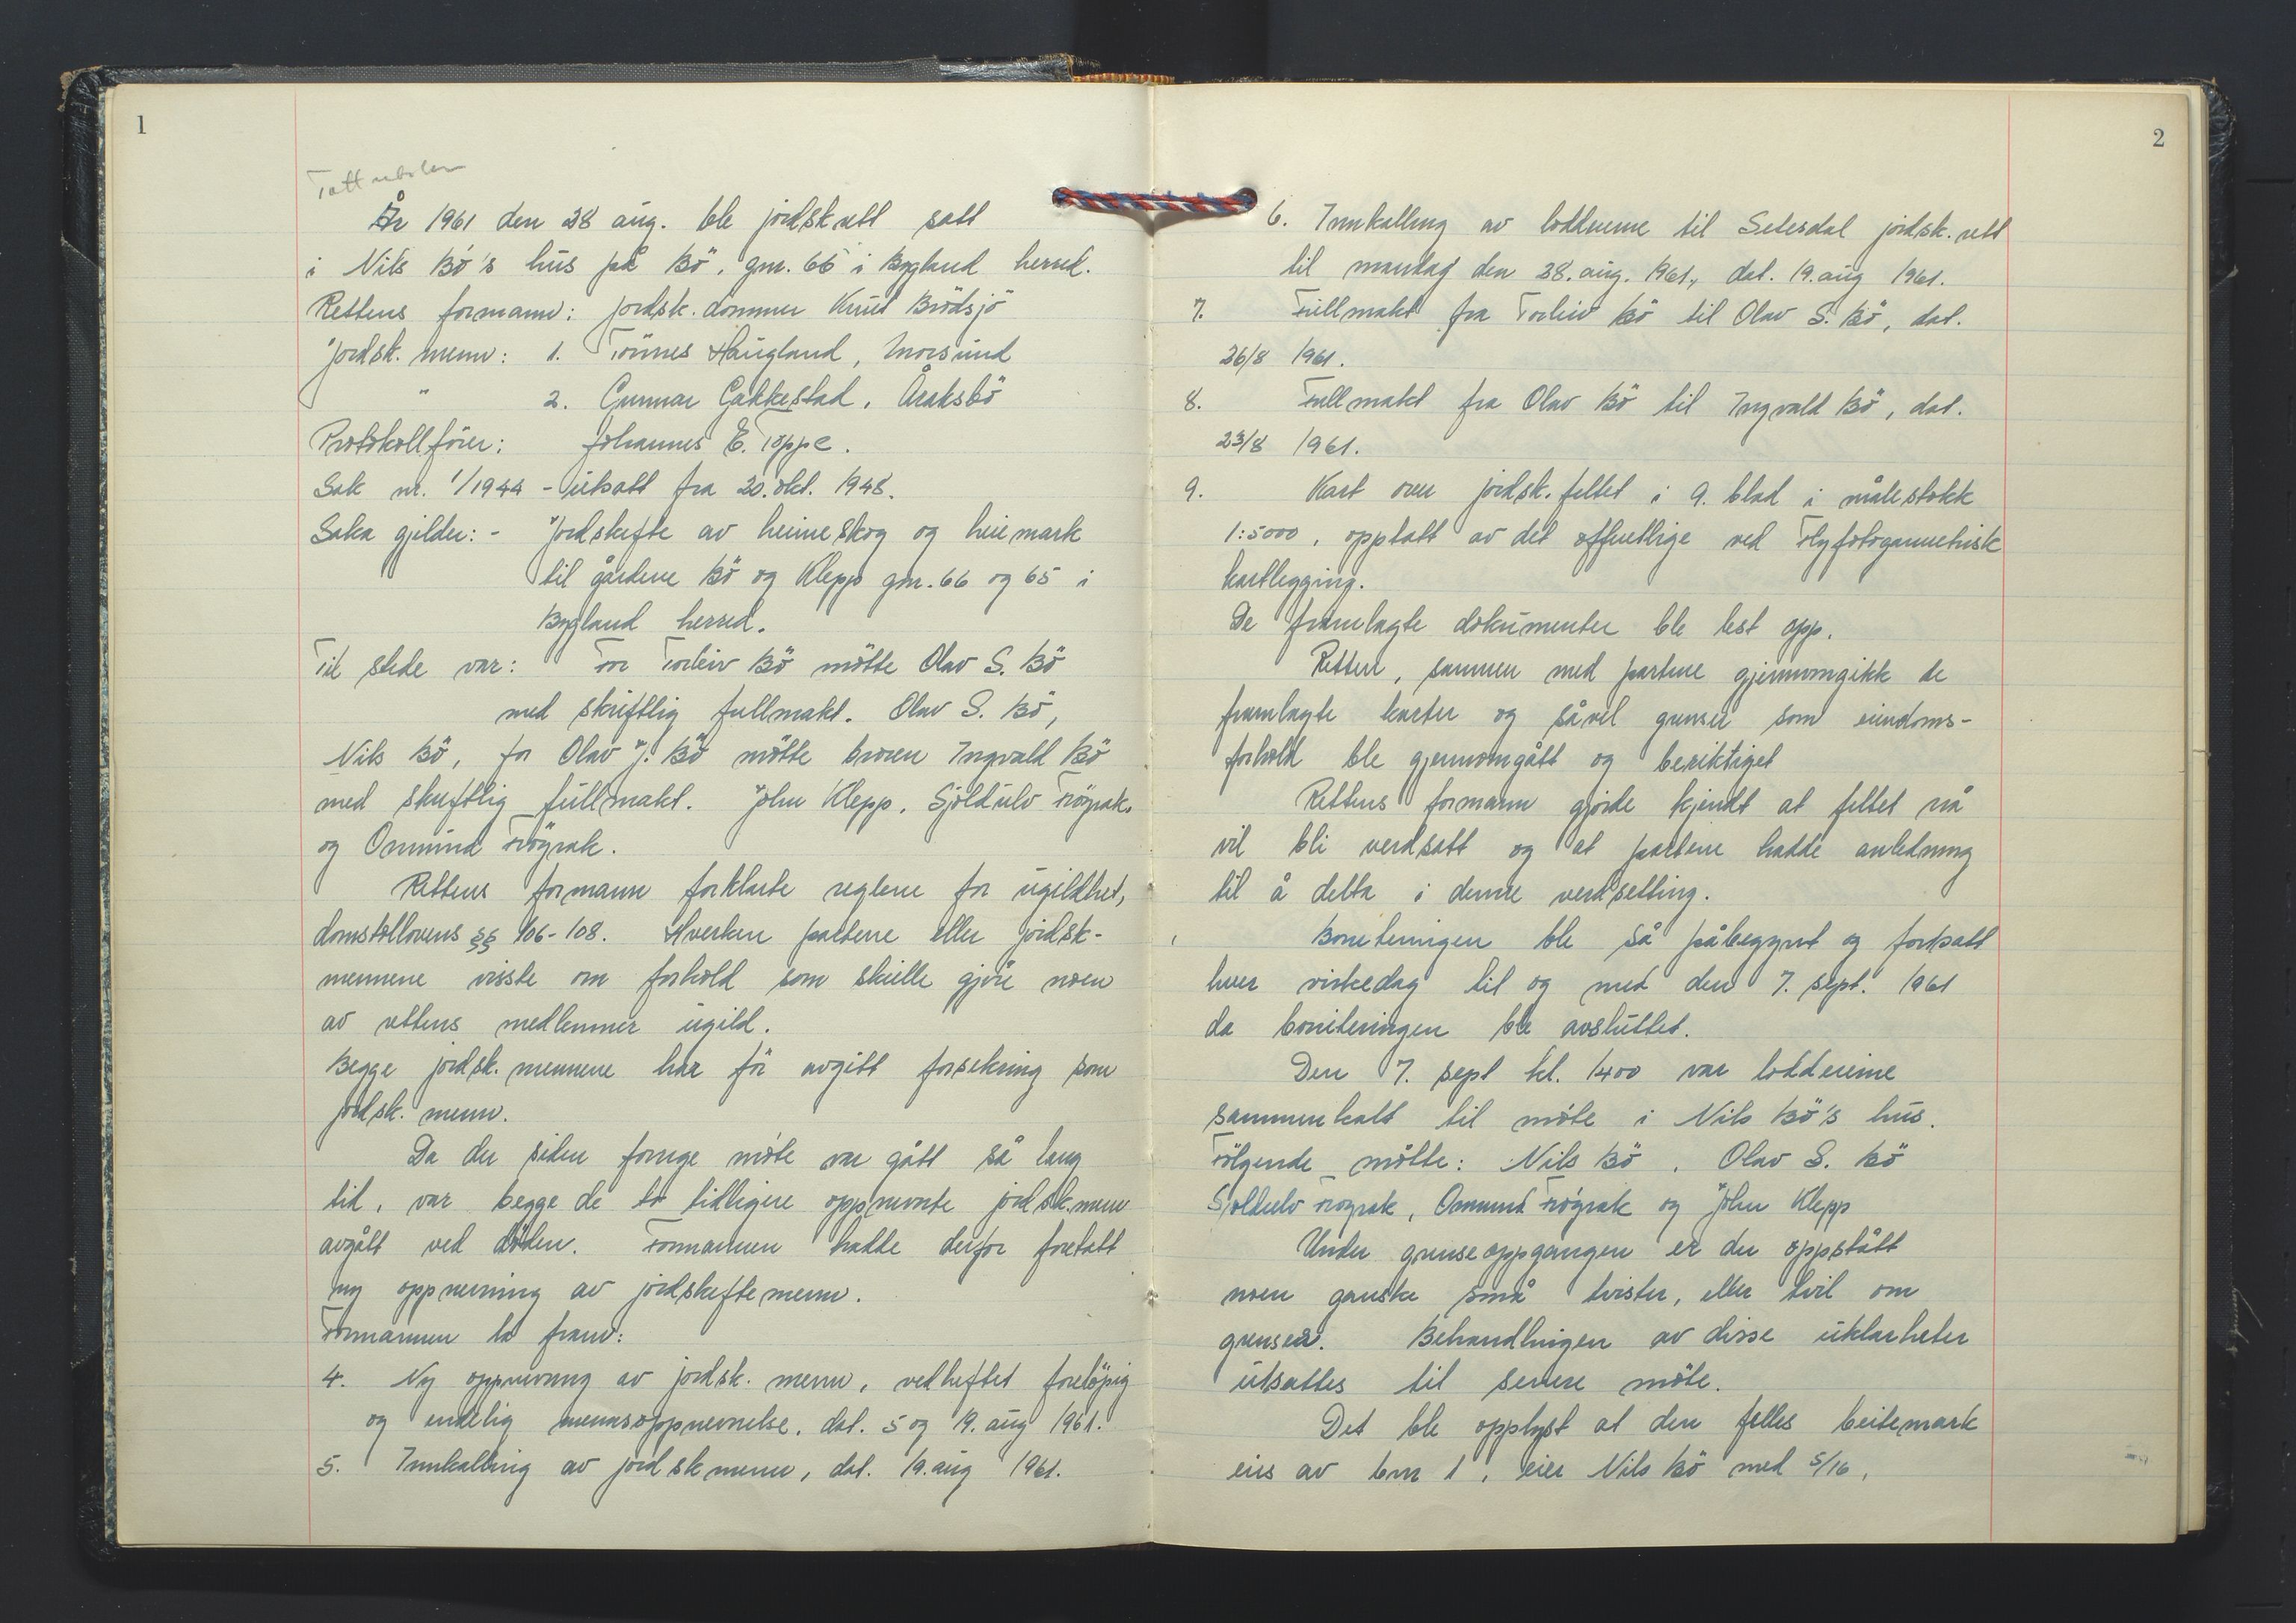 1
Tatt
År 1961 den 28 aug. ble jordskrett satt
i Nils Bö's hus på Bö, gnr. 66 i Bygland herred.
Rettens formann: jordsk. dommer Knut Brödsjö
Jordsk. menn: 1. Tönnes Haugland, Norsund
" 2. Gunnar Gakkestad, Åraksbö
Protokollförer: Johannes E. Toppe.
Sak nr. 1/1944 - utsatt fra 20. okt. 1948.
Saka gjelder: - Jordskifte av heimeskog og heiemark
til gårdene Bö og Klepp gnr. 66 og 65 i
Bygland herred.
Til stede var: For Torleiv Bö mötte Olav S. Bö
med skriftlig fullmakt. Olav S. Bö,
Nils Bö, for Olav J. Bö mötte broren Ingvald Bö
med skriftlig fullmakt. John Klepp, Sjöldulv Frögrak,
og Onmund Frögrak.
Rettens formann forklarte reglene for ugildhet,
domstollovens §§ 106-108. Hverken partene eller jordsk-
mennene visste om forhold som skulle gjöre noen
av rettens medlemmer ugild.
Begge jordsk. mennene har för avgitt forsikring som
jordsk. menn.
Da der siden forrige möte var gått så lang
tid, var begge de to tidligere oppnevnte jordsk.menn
avgått ved döden. Formannen hadde derfor foretatt
ny oppnevning av jordskiftemenn.
Formannen la fram:
4. Ny oppnevning av jordsk. menn, vedheftet forelöpig
og endelig mennsoppnevnelse, dat. 5 og 19. aug 1961.
5. Innkalling av jordskmenn, dat. 19. aug 1961.
2
6. Innkalling av loddeierne til Setesdal jordsk. rett
til mandag den 28. aug. 1961, dat. 19. aug 1961.
7. Fullmakt fra Torleiv Bö til Olav S. Bö, dat.
26/8 1961.
8. Fullmakt fra Olav Bö til Ingvald Bö, dat.
23/8 1961.
9. Kart over jordsk. feltet i 9. blad i målestokk
1:5000, opptatt av det offentlige ved Flyfotogammetrisk
kartlegging.
De framlagte dokumenter ble lest opp.
Retten, sammen med partene gjennomgikk de
framlagte karter og såvel grenser som eiendoms-
forhold ble gjennomgått og beriktiget
Rettens formann gjorde kjendt at feltet nå
vil bli verdsatt og at partene hadde anledning
til å delta i denne verdsetting.
Boniteringen ble så påbegynt og fortsatt
hver virkedag til og med den 7. sept. 1961
da boniteringen ble avsluttet.
Den 7. sept kl. 1400 var loddeierne
sammenkalt til möte i Nils Bö's hus.
Fölgende mötte: Nils Bö, Olav S. Bö
Sjöldulv Frögrak, Onmund Frögrak og John Klepp
Under grenseoppgangen er der oppstått
noen ganske små tvister, eller tvil om
grenser. Behandlingen av disse uklarheter
utsattes til senere möte.
Det ble opplyst at den felles beitemark
eies av bnr 1, eier Nils Bö med 5/16,